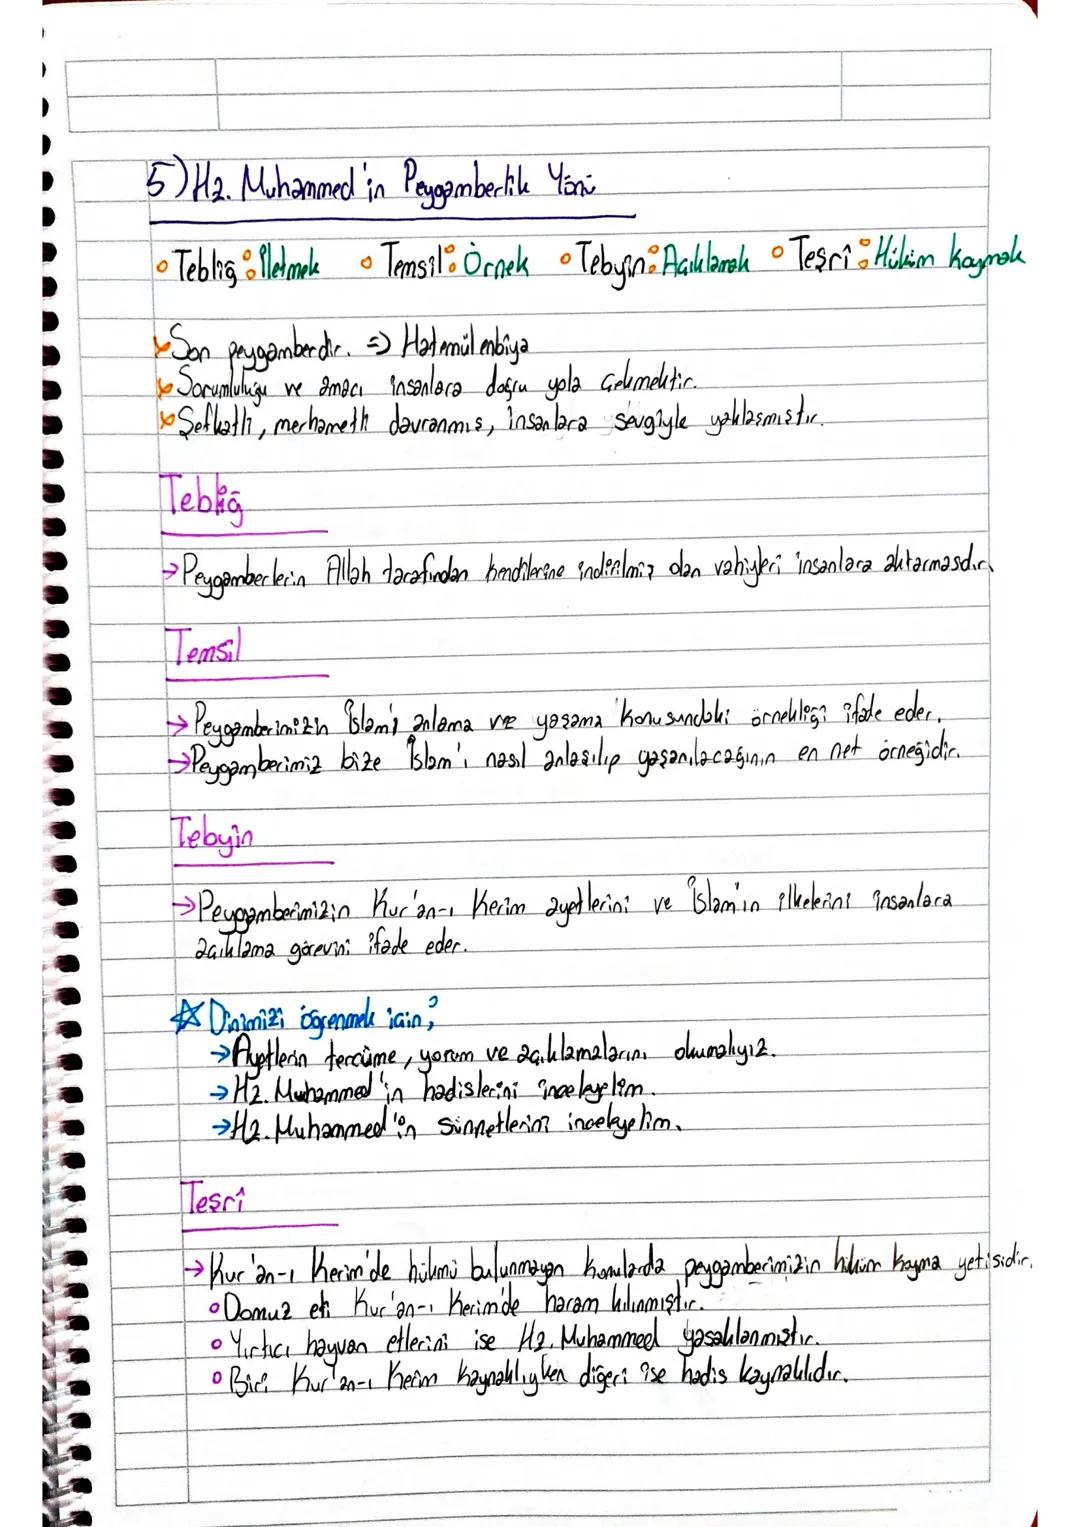 5) Hz. Muhammed'in Peygamberlik Yönü
• Tebliğ: İletmek • Temsil: Örnek • Tebyin: Açıklamak • Teşrî: Hüküm koymak
Son peygamberdir. => Hatemül enbiya
Sorumluluğu ve amacı insanlara doğru yola çekmektir.
Şefkatli, merhametli davranmış, insanlara sevgiyle yaklaşmıştır.
Tebliğ
→ Peygamberlerin Allah tarafından kendilerine indirilmiş olan vahiyleri insanlara aktarmasıdır.
Temsil
→ Peygamberimizin İslam'ı anlama ve yaşama konusundaki örnekliği ifade eder.
→ Peygamberimiz bize İslam'ı nasıl anlaşılıp yaşanılacağının en net örneğidir.
Tebyin
→ Peygamberimizin Kur'an-ı Kerim ayetlerini ve İslam'ın ilkelerini insanlara
açıklama görevini ifade eder.
☆ Dinimizi öğrenmek için;
→ Ayetlerin tercüme, yorum ve açıklamalarını okumalıyız.
→ Hz. Muhammed'in hadislerini inceleyelim.
→ Hz. Muhammed'in sünnetlerini inceleyelim.
Teşrî
→ Kur'an-ı Kerim'de hükmü bulunmayan konularda peygamberimizin hüküm koyma yetisidir.
• Domuz eti Kur'an-ı Kerim'de haram kılınmıştır.
• Yırtıcı hayvan etlerini ise Hz. Muhammed yasaklanmıştır.
• Biri Kur'an-ı Kerim kaynaklıyken diğeri ise hadis kaynaklıdır.